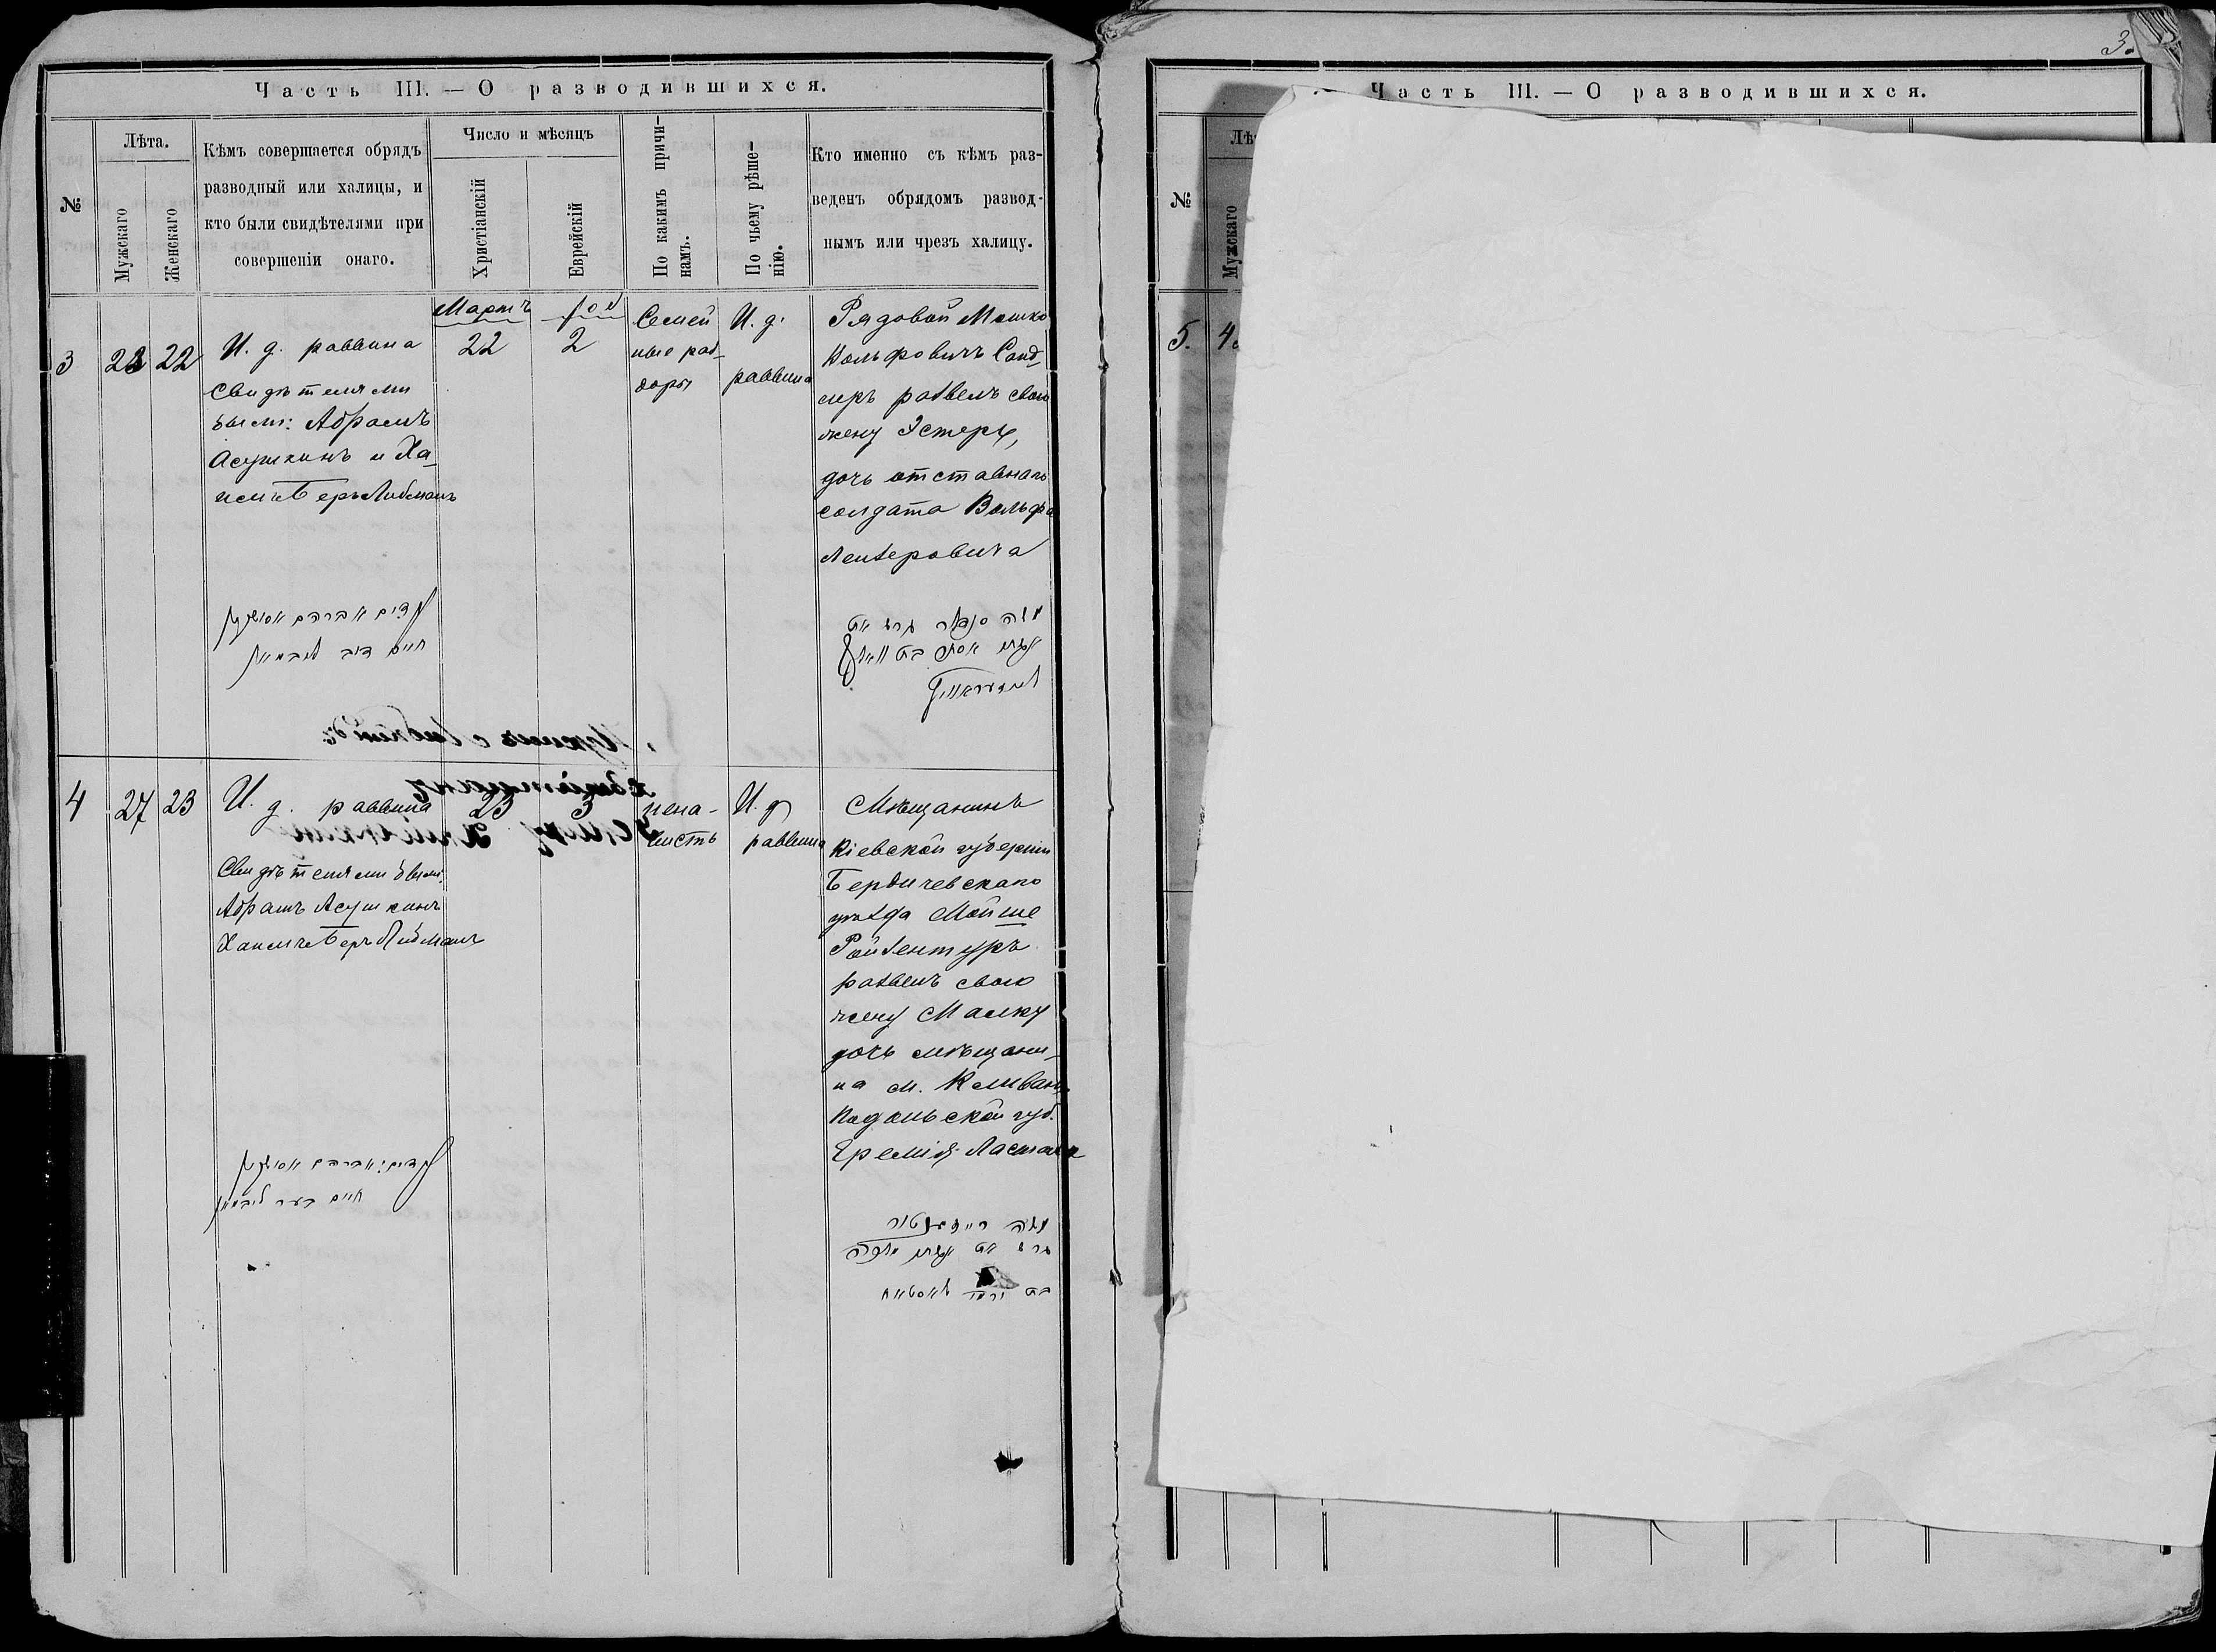 Часть III. — О разводившихся.
№
Лѣта.
Мужскаго
Женскаго
Кѣмъ совершается обрядъ
разводный или халицы, и
кто были свидѣтелями при
совершеніи онаго.
Число и мѣсяцъ
Христіанскій
Еврейскій
По какимъ причи-
намъ.
По чьему рѣше-
нію.
Кто именно съ кѣмъ раз-
веденъ обрядомъ развод-
нымъ или чрезъ халицу.
3
22
И. д. раввина
Свидѣтелями
были: Абрамъ
Асушкинъ и Ха-
имъ Беръ Либманъ
עדים אברהם
חיים דוב ליבמאן
Мартъ
22
2
Семей
ные раз-
доры
И. д.
раввина
Рядовой Мошко
Вольфовичъ Санд-
леръ развелъ свою
жену Эстеръ,
дочь отставнаго
солдата Вольфа
Лейзеровича
משה גרש את
אשתו אסתר בת וואלף
4 27 23
И. д. раввина
Свидѣтелями были:
Абрамъ Асушкинъ
Хаимъ Беръ Либманъ
עדים: אברהם
חיים בער ליבמאן
23
3
нена-
висть
И. д.
раввина
Мѣщанинъ
Кіевской губерніи
Бердичевскаго
уѣзда Мойше
Ройзентуръ
развелъ свою
жену Малку
дочь мѣщани-
на м.
Подольской губ.
משה
גרש את אשתו מלכה
בת
3.
Часть III. — О разводившихся.
№
Мужскаго
5.